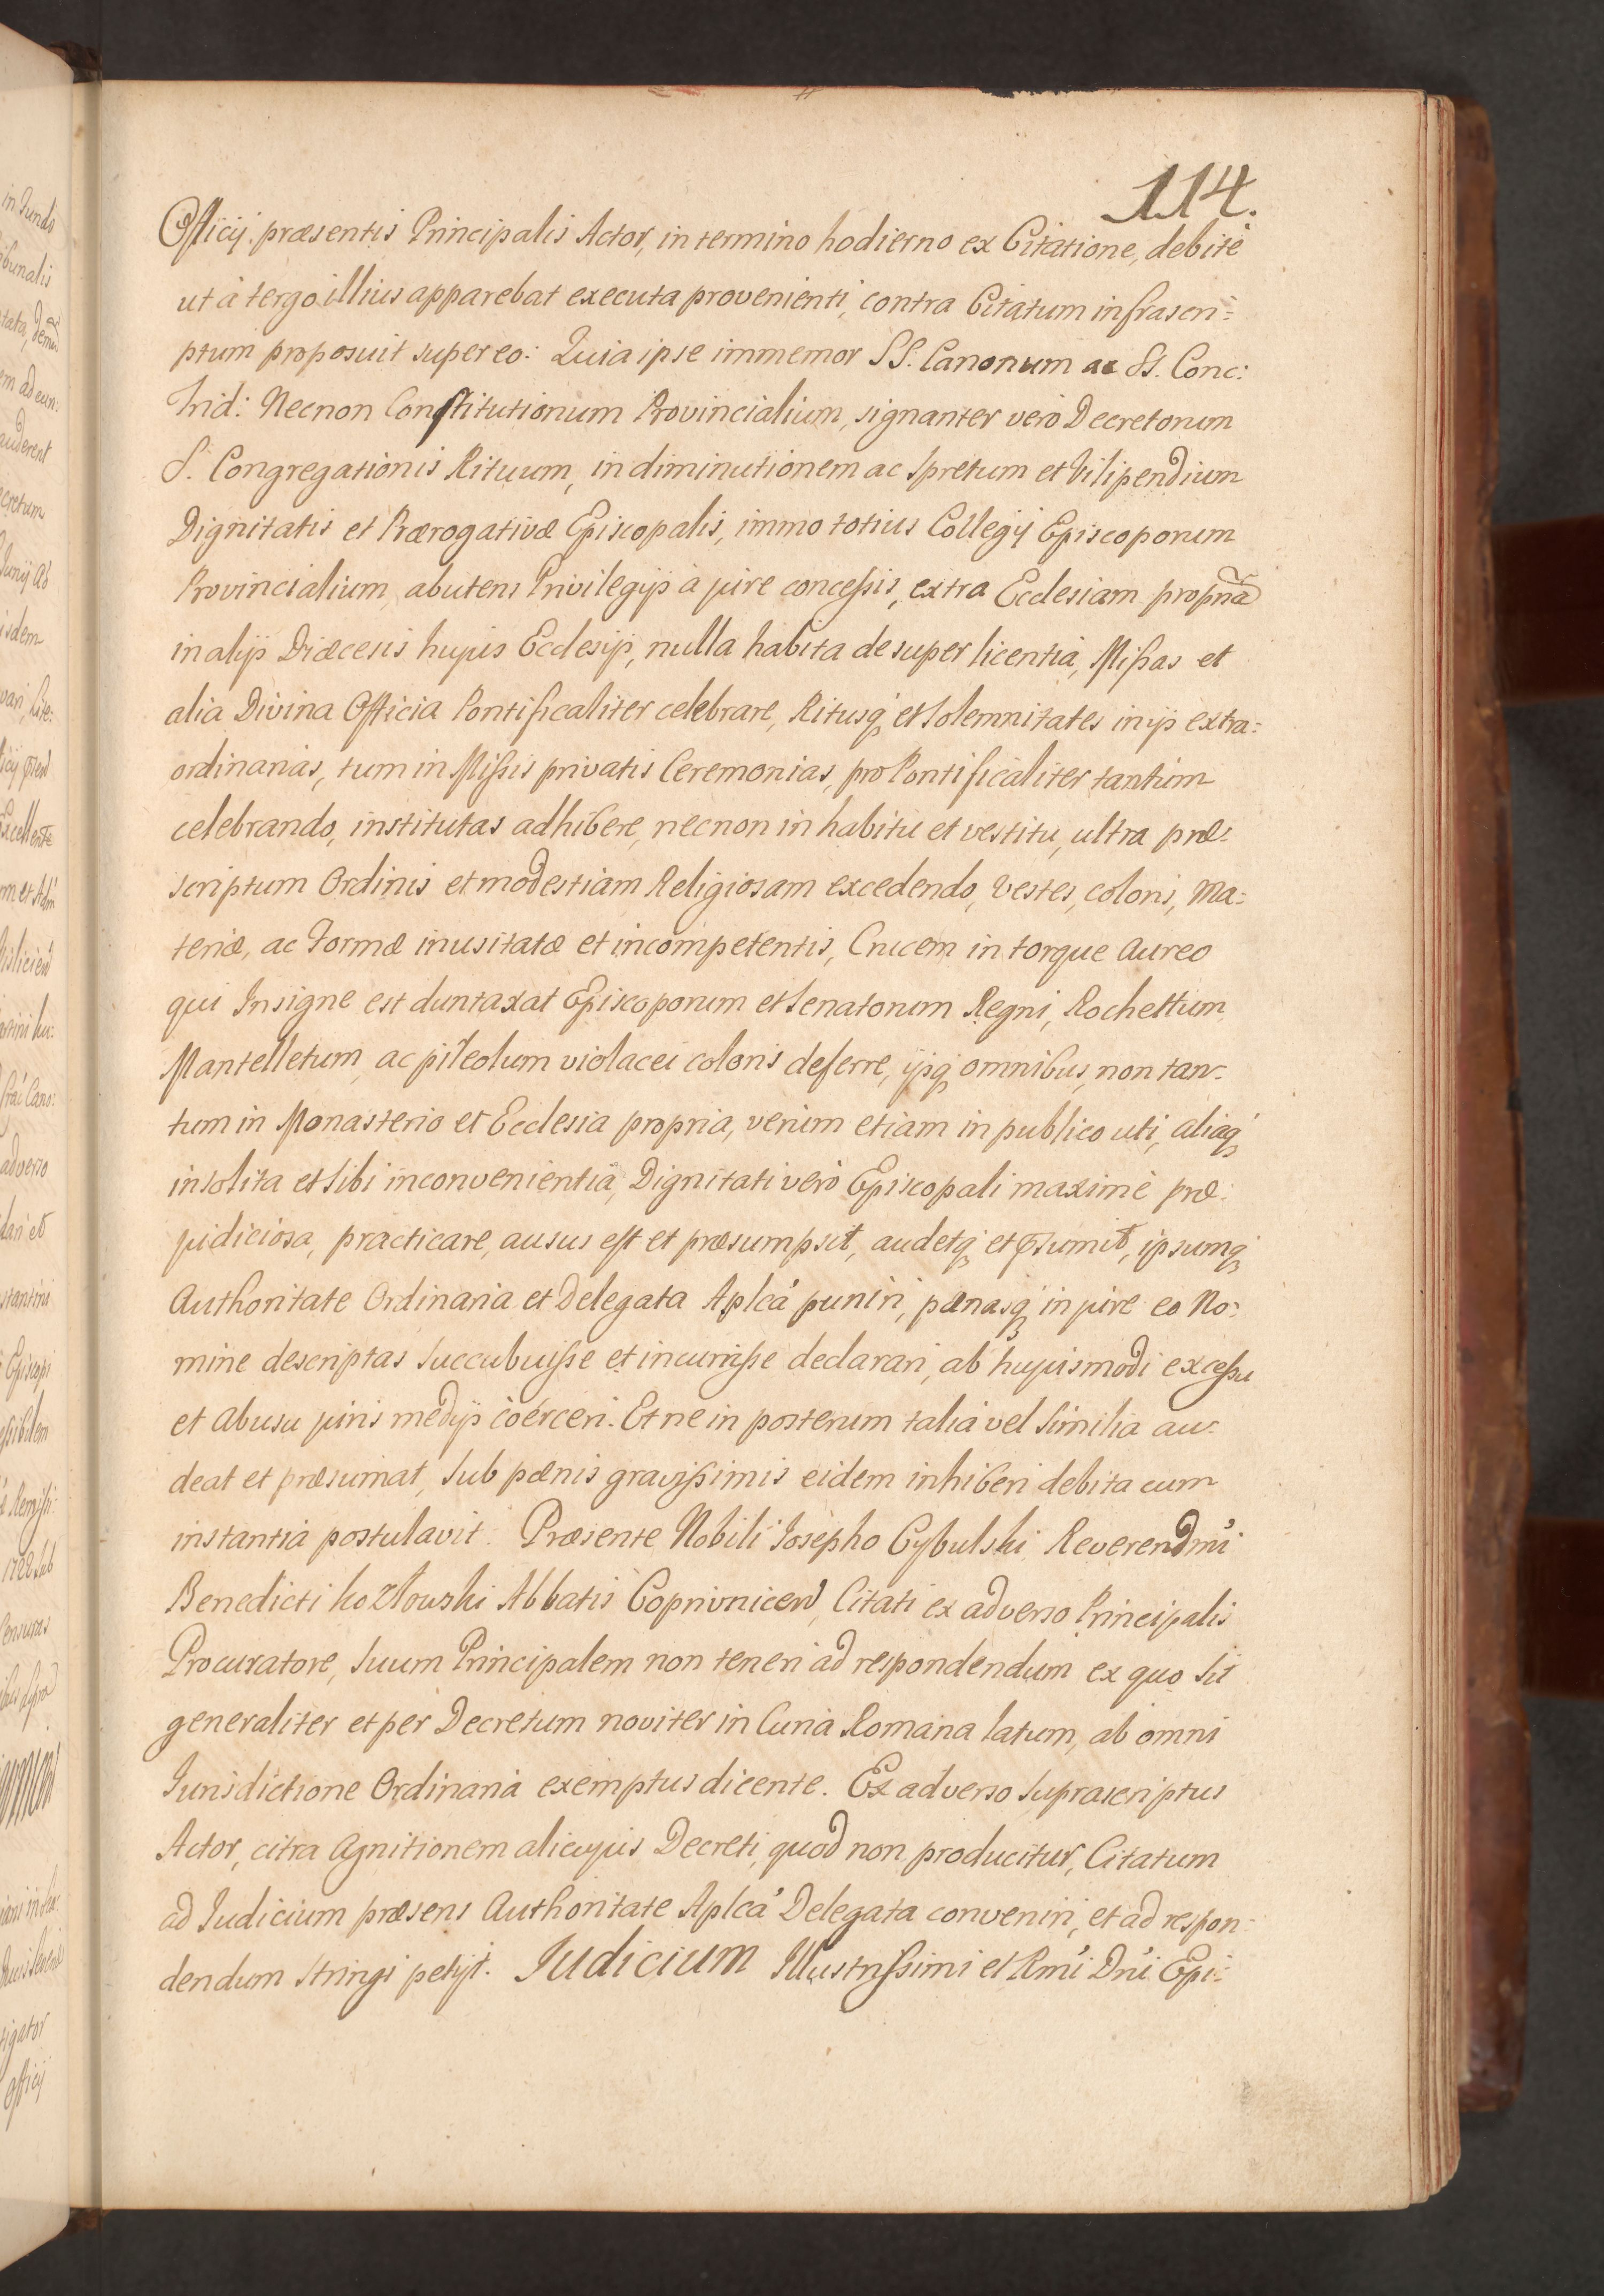 114.
Officij præsentis Principalis Actor, in termino hodierno ex Citatione, debitè
ut à tergo illius apparebat executa provenienti, contra Citatum infrascri=
ptum proposuit super eo: Quia ipse immemor SS. Canonum ac SS. Conc:
Trid: Necnon Constitutionum Provincialium, signanter verò Decretorum
S. Congregationis Rituum, in diminutionem ac Spretum et Vilipendium
Dignitatis et Prærogativæ Episcopalis, immo totius Collegij Episcoporum
Provincialium, abutens Privilegijs à jure concessis, extra Ecclesiam propriã
in alijs Diæcesis hujus Ecclesijs, nulla habita desuper licentiâ, Missas et
alia Divina Officia Pontificaliter celebrare, Ritusq, et Solemnitates in ijs extra=
ordinarias, tum in Missis privatis Ceremonias, pro Pontificaliter tantùm
celebrando, institutas adhibere, necnon in habitu et vestitu, ultra præ=
scriptum Ordinis et modestiam Religiosam excedendo, Vestes, coloris, Ma=
teriæ, ac Formæ inusitatæ et incompetentis, Crucem in torque Aureo
qui Insigne est duntaxat Episcoporum et Senatorum Regni, Rochettum
Mantelletum, ac pileolum violacei coloris deferre, ijsq, omnibus, non tan=
tum in Monasterio et Ecclesia propria, verùm etiam in publico uti, aliaq,
insolita et Sibi inconvenientia, Dignitati verò Episcopali maximè præ=
judiciosa, practicare, ausus est et præsumpsit, audetq, et p̄sumit, ipsumq,
Authoritate Ordinaria et Delegata Aplcâ puniri, pænasq, in jure eo No=
mine descriptas Succubuisse et incurrisse declarari, ab hujusmodi excessu
et Abusu juris medijs coërceri. Et ne in posterum talia vel Similia au=
deat et præsumat, Sub pænis gravissimis eidem inhiberi debita cum
instantia postulavit. Præsente Nobili Iosepho Cybulski Reverendmi
Benedicti Kozłowski Abbatis Coprivnicen, Citati ex adverso Principalis
Procuratore, Suum Principalem non teneri ad respondendum ex quo Sit
generaliter et per Decretum noviter in Curia Romana latum, ab omni
Iurisdictione Ordinaria exemptus dicente. Ex adverso Suprascriptus
Actor, citra Agnitionem alicujus Decreti, quod non producitur, Citatum
ad Iudicium præsens Authoritate Aplcâ Delegata conveniri, et ad respon=
dendum Stringi petijt. Iudicium Illustrissimi et Rmi Dni Epi=